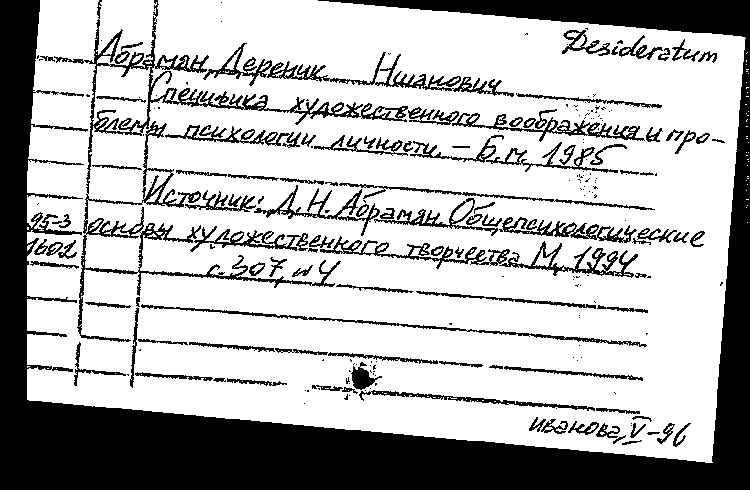 Desideratum
Абрамян, Дереник Ншанович
Специфика художественного воображения и про-
блемы психологии личности. – Б.м., 1985
Источник: Д.Н. Абрамян. Общепсихологические
95-3 основы художественного творчества М, 1994
1602 с. 307, № 4
Иванова, V-96